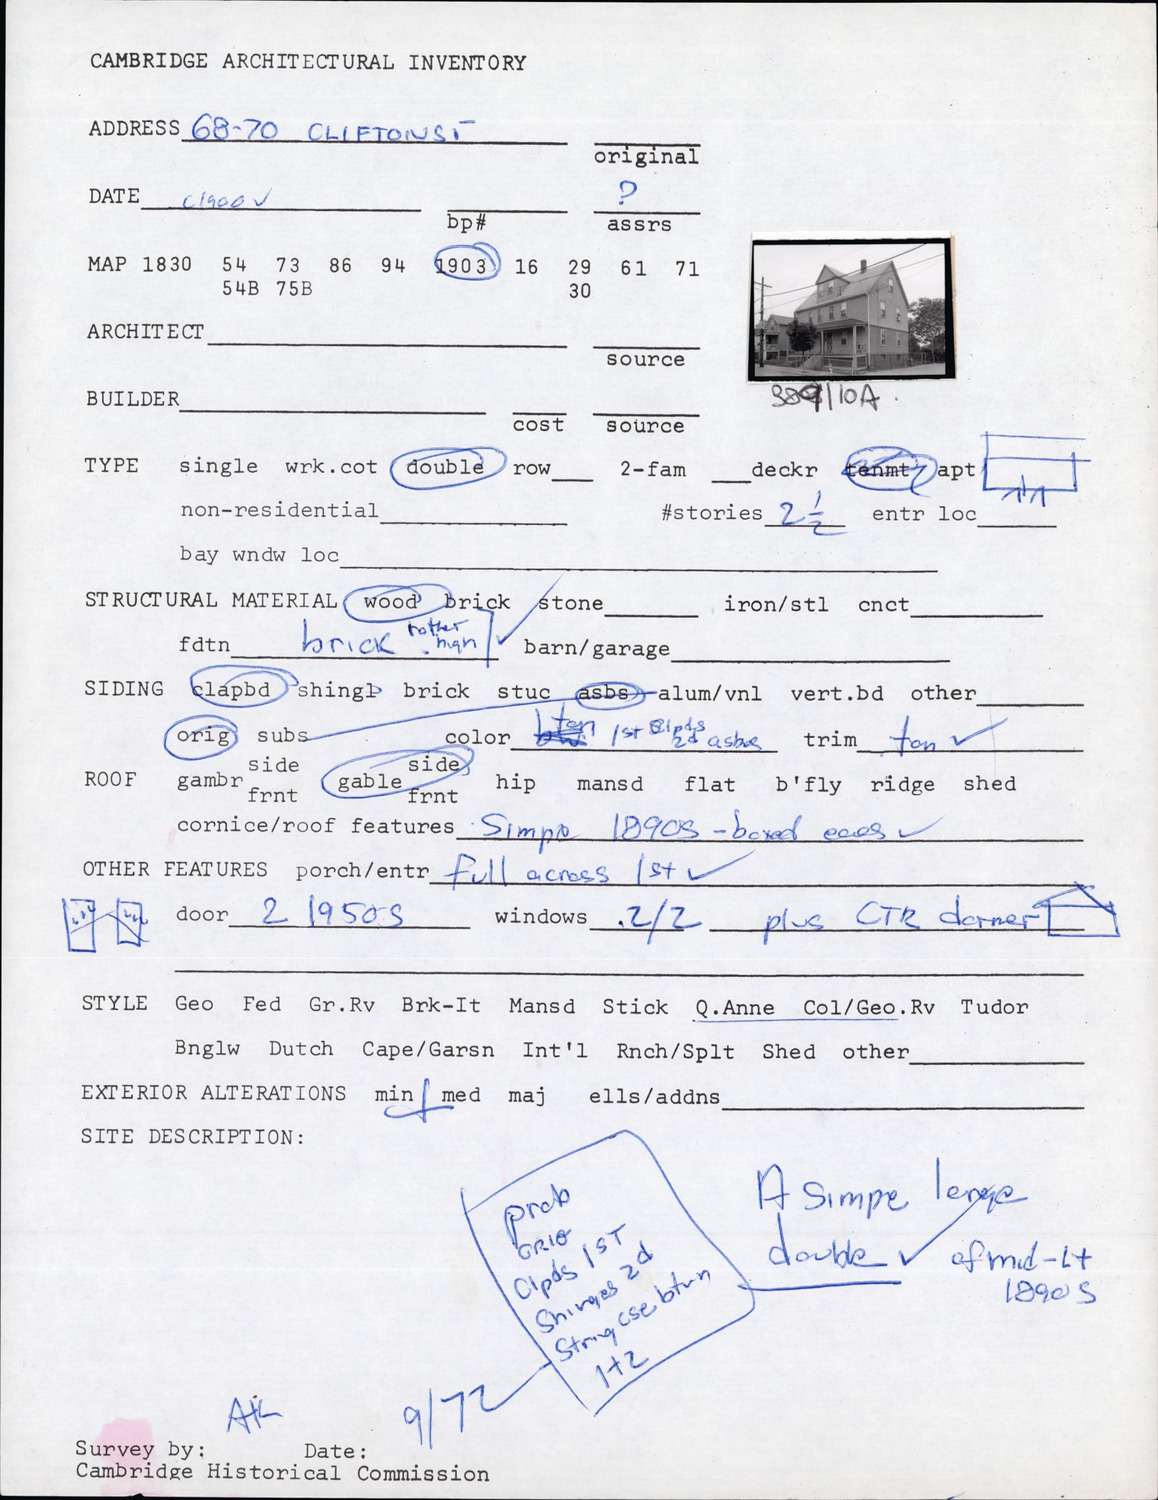 CAMBRIDGE ARCHITECTURAL INVENTORY
ADDRESS 68-70 CLIFTON ST
original
DATE c1900 ✓ ?
bp# assrs
MAP 1830 54 73 86 94 1903 16 29 61 71
54B 75B 30
ARCHITECT
source
389/10A
BUILDER
cost source
TYPE single wrk.cot double row 2-fam deckr tenmt apt
non-residential #stories 2 1/2 entr loc
bay wndw loc
STRUCTURAL MATERIAL wood brick stone iron/stl cnct
fdtn brick rather high barn/garage
SIDING clapbd shingl brick stuc asbs alum/vnl vert.bd other
orig subs color tan 1st Clpds 2d asbs trim tan ✓
ROOF gambr side frnt gable side frnt hip mansd flat b'fly ridge shed
cornice/roof features Simple 1890s - boxed eaves ✓
OTHER FEATURES porch/entr full across 1st ✓
door 2 1950s windows 2/2 plus CTR dormer
STYLE Geo Fed Gr.Rv Brk-It Mansd Stick Q.Anne Col/Geo.Rv Tudor
Bnglw Dutch Cape/Garsn Int'l Rnch/Splt Shed other
EXTERIOR ALTERATIONS min med maj ells/addns
SITE DESCRIPTION:
prob
ORIG
Clpds 1ST
Shingles 2d
String cse btwn
1+2
A Simple large
double ✓ of mid-Lt
1890s
9/72
Survey by: Date:
Cambridge Historical Commission